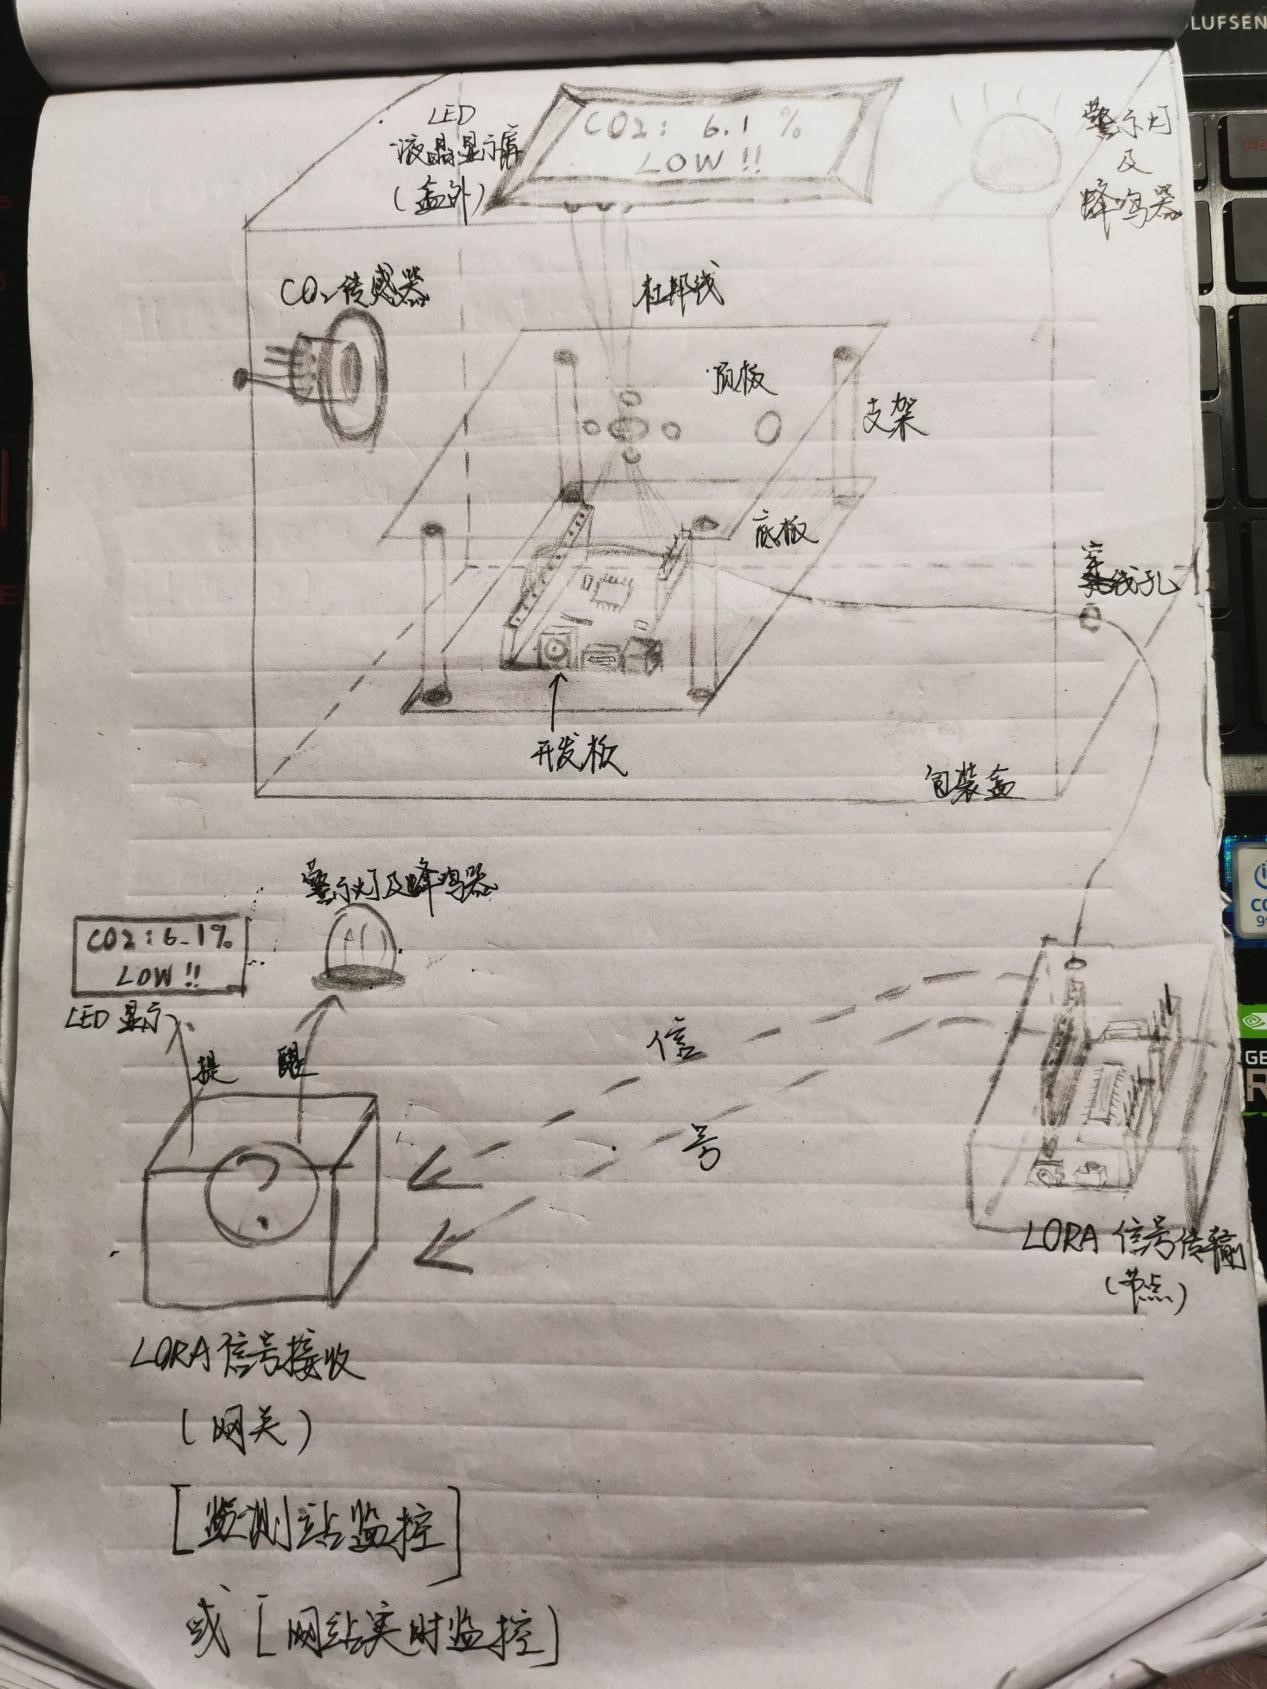 LUFSEN
LED
液晶显示屏
(盒外)
CO2: 6.1 %
LOW !!
警示灯
及
蜂鸣器
CO₂传感器
杜邦线
顶板
支架
底板
穿线孔
开发板
包装盒
警示灯及蜂鸣器
CO2:6.1%
LOW !!
LED 显示
提 醒
信
号
?
LORA 信号传输
(节点)
LORA信号接收
(网关)
[监测站监控]
或[网站实时监控]